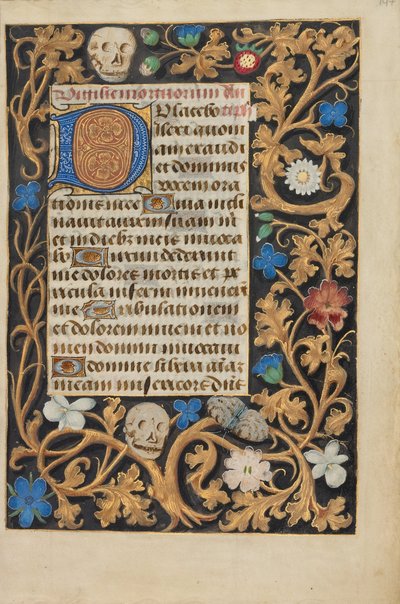 147
Vigilie mortuorum Añ
D Placebo ps
ilexi quoni
am exaudi
et dominus
vocem ora
tionis mee Quia incli
navit aurem suam mi
et in diebꝫ meis invoca
bo Circumdederunt
me dolores mortis et pe
ricula inferni invenerunt
me Tribulationem
et dolorem inveni et no
men domini invocavi
O domine libera aiāꝫ
meam misericors dñe